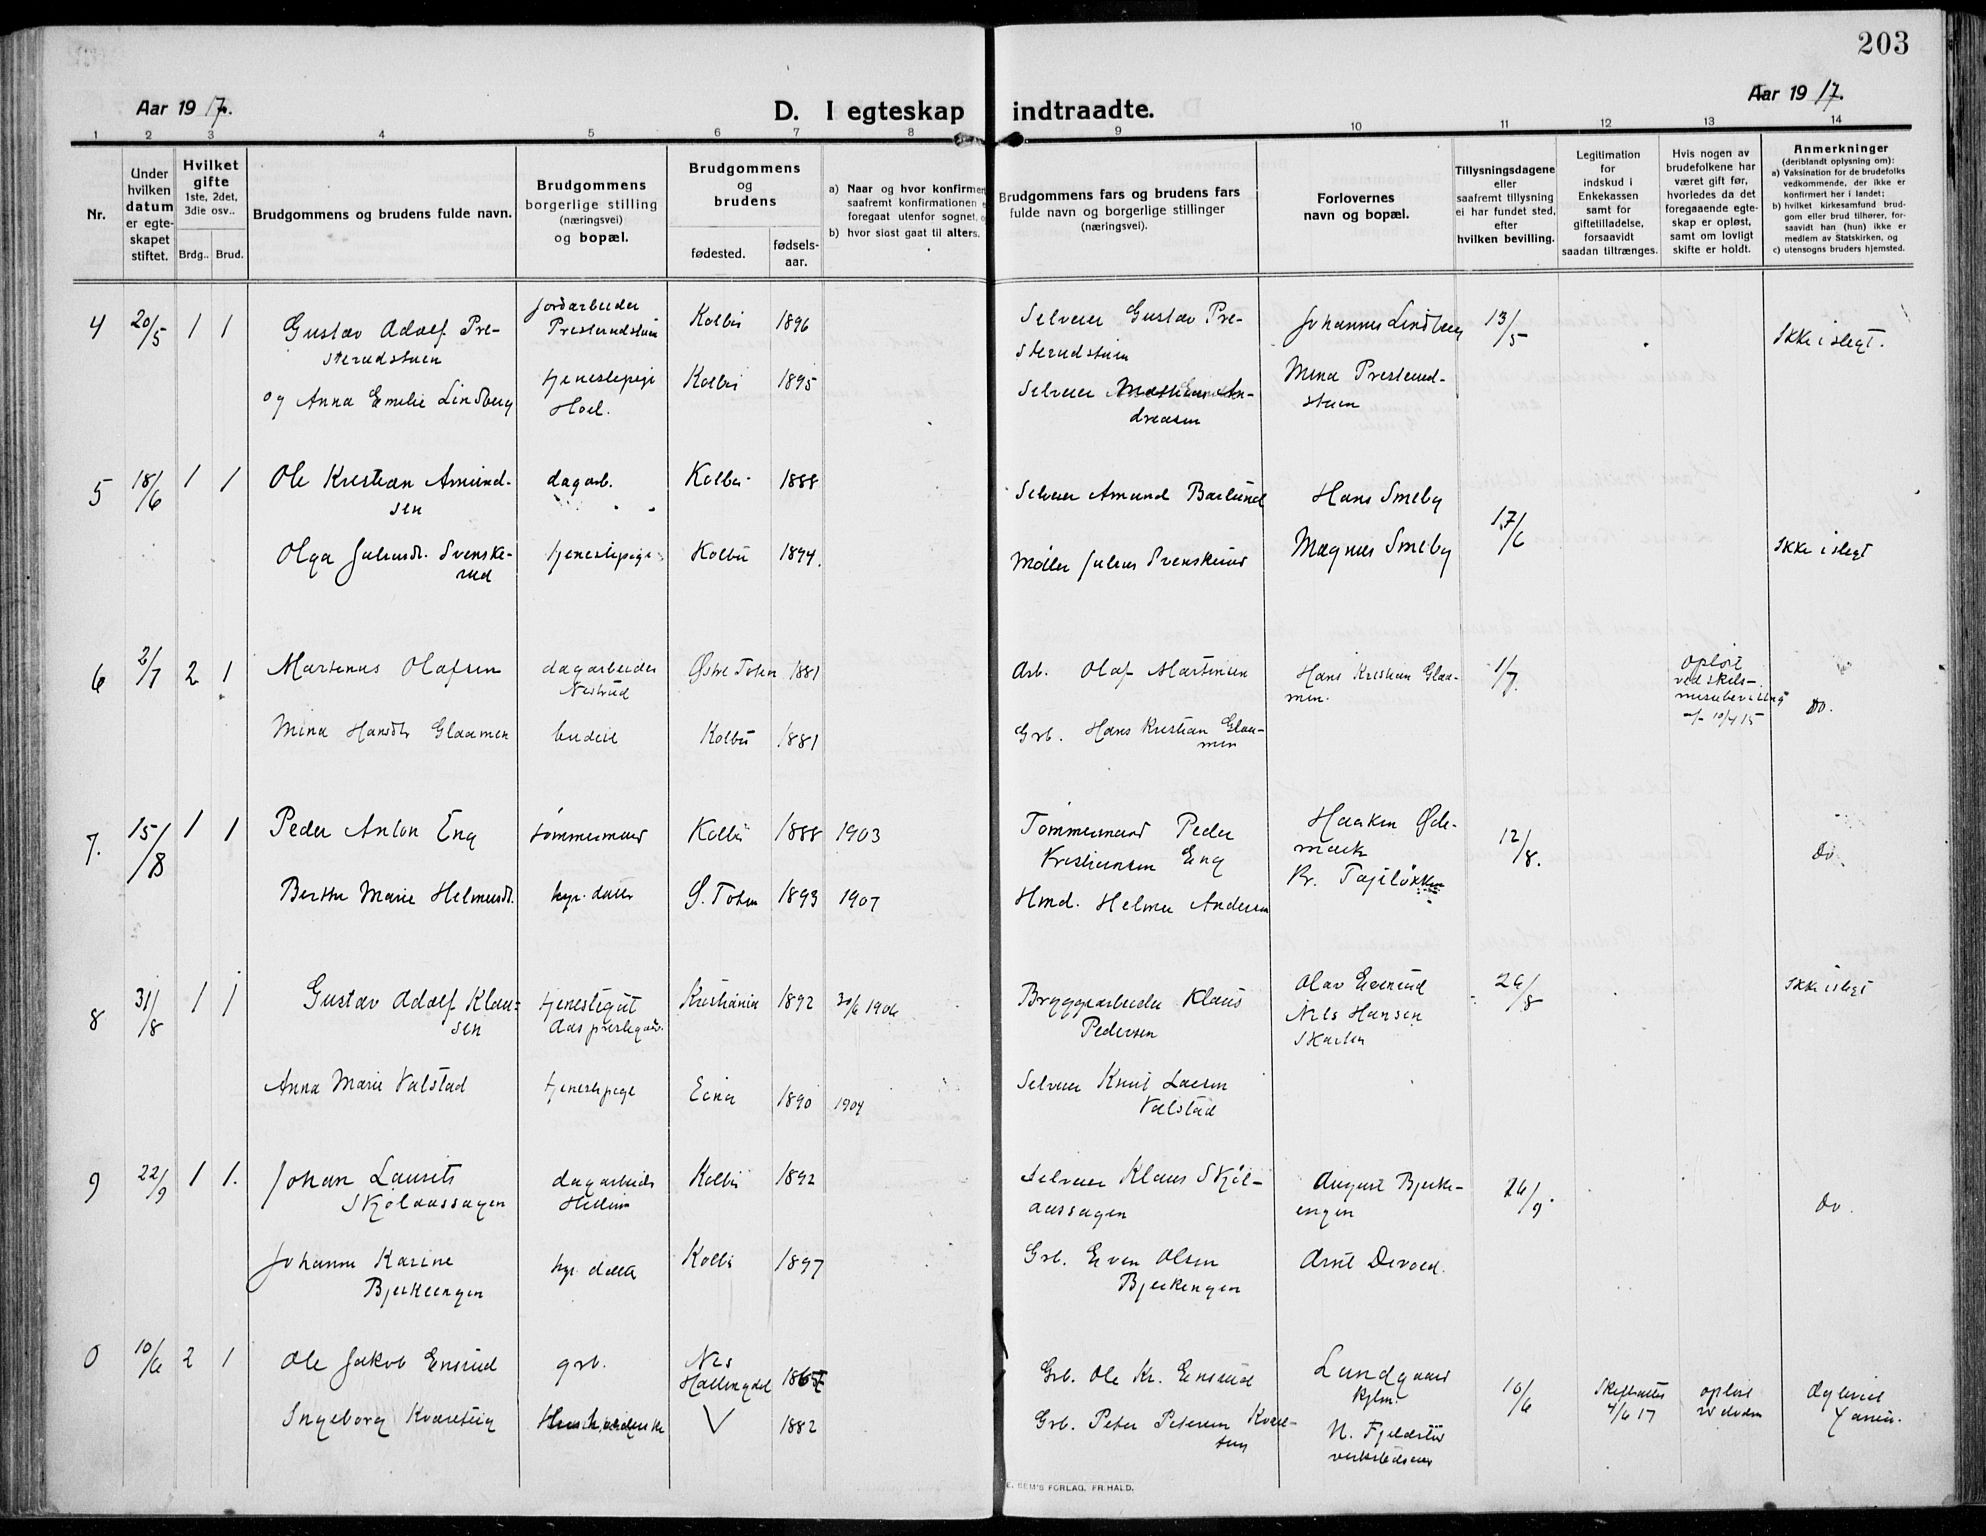 203
Aar 1917.
D. I egteskap indtraadte.
Aar 1917.
1 2 3 4 5 6 7 8 9 10 11 12 13 14
Nr.
Under hvilken datum er egteskapet stiftet.
Hvilket gifte
1ste, 2det, 3die osv..
Brdg.. Brud.
Brudgommens og brudens fulde navn.
Brudgommens borgerlige stilling (næringsvei) og bopæl.
Brudgommens og brudens
fødested.
fødsels-aar.
a) Naar og hvor konfirmer
saafremt konfirmationen
foregaat utenfor sognet,
b) hvor sidst gaat til alters.
Brudgommens fars og brudens fars
fulde navn og borgerlige stillinger
(næringsvei).
Forlovernes
navn og bopæl.
Tillysningsdagene
eller
saafremt tillysning
ei har fundet sted,
efter
hvilken bevilling.
Legitimation
for
indskud i
Enkekassen
samt for
giftetilladelse,
forsaavidt
saadan tiltrænges.
Hvis nogen av
brudefolkene har
været gift før,
hvorledes da det
foregaaende egte-
skap er opløst,
samt om lovligt
skifte er holdt.
Anmerkninger
(deriblandt oplysning om):
a) Vaksination for de brudefolks
vedkommende, der ikke er
konfirmert her i landet;
b) hvilket kirkesamfund brud-
gom eller brud tilhører, for-
saavidt han (hun) ikke er
medlem av Statskirken, og
c) utensogns bruders hjemsted.
4 20/5 1 1 Gustav Adolf Pre-
sterudstuen
Jordarbeider
Presterudstuen
Kolbu 1896
Selveier Gustav Pre-
sterudstuen
Johannes Lindberg 13/5 Ikke i slegt.
og Anna Emelie Lindberg
tjenestepige
Hoel.
Kolbu 1895
Selveier An-
dreasen
Mina Presterud-
stuen
5 18/6 1 1 Ole Kristian Amund-
sen
dagarb. Kolbu 1888
Selveier Amund Barlund
Hans Smeby 17/6
Olga Juliusdt. Svenske-
rud
tjenestepige Kolbu 1894.
Møller Julius Svenskerud
Magnus Smeby Ikke i slegt
6 2/7 2 1 Martinus Olafsen
dagarbeider
Nesrud
Østre Toten 1881
Arb. Olaf Martinsen
Hans Kristian Glaa-
men.
1/7.
opløst
ved skils-
missebevilling
af 10/4 15
Do.
Mina Hansdtr Glaamen budeie Kolbu 1881
Grb. Hans Kristian Glaa-
men
7. 15/8 1 1 Peder Anton Eng tømmermand Kolbu 1888 1903
Tømmermand Peder
Kristiansen Eng
Haaken Øde-
mark
12/8. Do.
Berthe Marie Helmersdt. hjv. datter Ø. Toten 1893 1907
Hmd. Helmer Andersen
8 31/8 1 1 Gustav Adolf Klau-
sen
tjenestegut
Aas prestegaard.
Kristiania 1892 30/6 1906
Bryggearbeider Klaus
Pedersen
Olav Evenrud
Nils Hansen
Skarten
26/8 Ikke i slegt
Anna Marie Valstad tjenestepige Eina 1890 1904
Selveier Knut Larsen
Valstad
9 22/9 1 1. Johan Laurits
Skjølaassagen
dagarbeider
Kolbu 1892
Selveier Klaus Skjøl-
aassagen
August Bjerke-
engen
Do.
Johanne Karine
Bjerkeengen
hjv. datter Kolbu 1897
Grb. Even Olsen
Bjerkengen
Arnt Devold.
0 10/6 2 1 Ole Jakob Ensrud grb.
Nes
Hallingdal
Grb. Ole Kr. Ensrud
Lundgaard
10/6
Skifteattest
4/6 17
opløst
v døden
Ingeborg Kværetuig 1882
Grb. Peter Petersen
N. Fjeldstad
E. SEM'S FORLAG, FR.HALD.